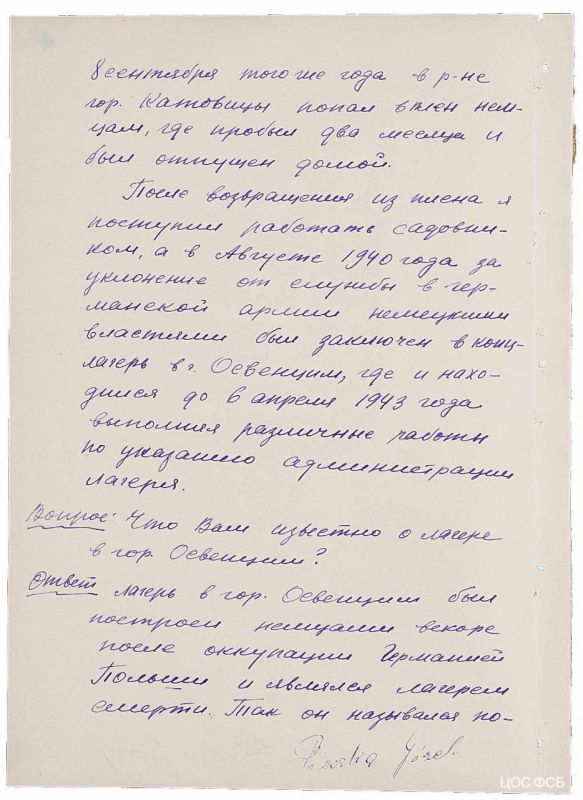 8 сентября того же года в р-не
гор. Катовицы попал в плен нем-
цам, где пробыл два месяца и
был отпущен домой.
После возвращения из плена я
поступил работать садовни-
ком, а в Августе 1940 года за
уклонение от службы в гер-
манской армии немецкими
властями был заключен в конц-
лагерь в г. Освенцим, где и нахо-
дился до 6 апреля 1943 года
выполняя различные работы
по указанию администрации
лагеря.
Вопрос: Что Вам известно о лагере
в гор. Освенцим?
Ответ лагерь в гор. Освенцим был
построен немцами вскоре
после оккупации Германией
Польши и являлся лагерем
смерти. Так он назывался по-
Józef
ЦОС ФСБ